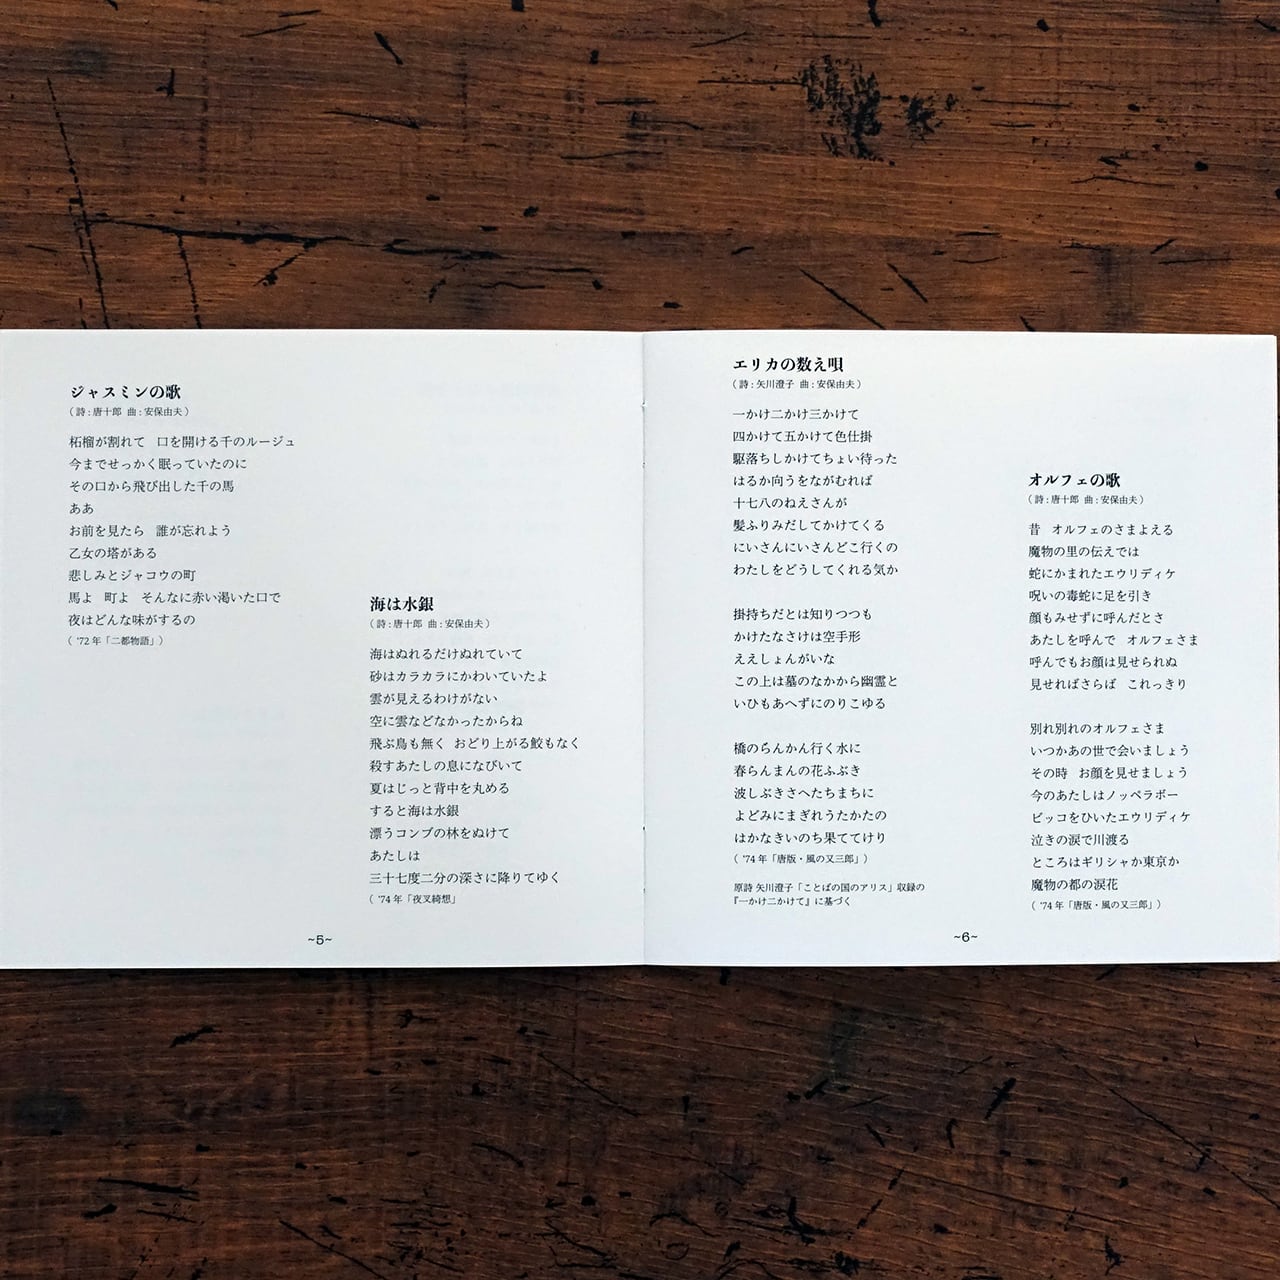 ジャスミンの歌
（ 詩 : 唐十郎 曲 : 安保由夫 ）
柘榴が割れて 口を開ける千のルージュ
今までせっかく眠っていたのに
その口から飛び出した千の馬
ああ
お前を見たら 誰が忘れよう
乙女の塔がある
悲しみとジャコウの町
馬よ 町よ そんなに赤い渇いた口で
夜はどんな味がするの
（ '72 年「二都物語」）
海は水銀
（ 詩 : 唐十郎 曲 : 安保由夫 ）
海はぬれるだけぬれていて
砂はカラカラにかわいていたよ
雲が見えるわけがない
空に雲などなかったからね
飛ぶ鳥も無く おどり上がる鮫もなく
殺すあたしの息になびいて
夏はじっと背中を丸める
すると海は水銀
漂うコンブの林をぬけて
あたしは
三十七度二分の深さに降りてゆく
（ '74 年「夜叉綺想」
~5~
エリカの数え唄
（ 詩 : 矢川澄子 曲 : 安保由夫 ）
一かけ二かけ三かけて
四かけて五かけて色仕掛
駆落ちしかけてちょい待った
はるか向うをながむれば
十七八のねえさんが
髪ふりみだしてかけてくる
にいさんにいさんどこ行くの
わたしをどうしてくれる気か
掛持ちだとは知りつつも
かけたなさけは空手形
ええしょんがいな
この上は墓のなかから幽霊と
いひもあへずにのりこゆる
橋のらんかん行く水に
春らんまんの花ふぶき
波しぶきさへたちまちに
よどみにまぎれうたかたの
はかなきいのち果ててけり
（ '74 年「唐版・風の又三郎」）
原詩 矢川澄子「ことばの国のアリス」収録の
『一かけ二かけて』に基づく
オルフェの歌
（ 詩 : 唐十郎 曲 : 安保由夫 ）
昔 オルフェのさまよえる
魔物の里の伝えでは
蛇にかまれたエウリディケ
呪いの毒蛇に足を引き
顔もみせずに呼んだとさ
あたしを呼んで オルフェさま
呼んでもお顔は見せられぬ
見せればさらば これっきり
別れ別れのオルフェさま
いつかあの世で会いましょう
その時 お顔を見せましょう
今のあたしはノッペラボー
ビッコをひいたエウリディケ
泣きの涙で川渡る
ところはギリシャか東京か
魔物の都の涙花
（ '74 年「唐版・風の又三郎」）
~6~